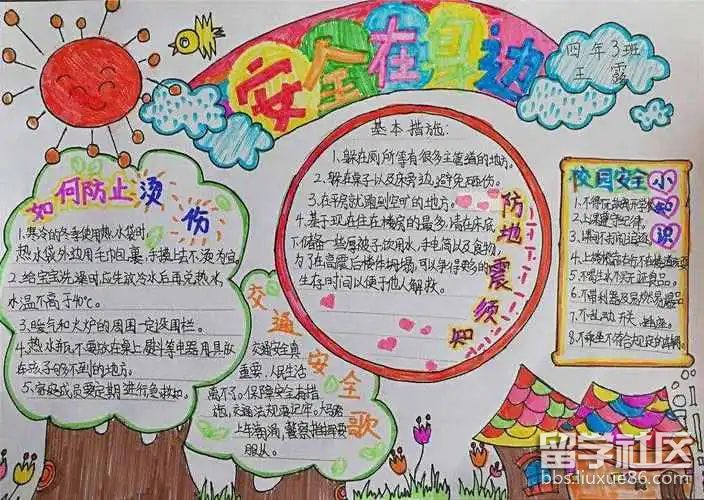 安全在身边
四年3班
王露
如何防止烫伤
1.寒冷的冬季使用热水袋时,
热水袋外边用毛巾裹,手摸上去不烫为宜
2.给宝宝洗澡时,应先放冷水后再兑热水,
水温不高于40℃。
3.暖气和火炉的周围一定设围栏。
4.热水瓶不要放在桌上,熨斗等电器用具放
在孩子够不到的地方。
5.家庭成员要定期进行急救
交通安全歌
交通安全真
重要,人民生活
离不了。保障安全有措
施,交通法规要记牢。大马路
上车辆涌,警察指挥要
服从。
基本措施:
1.躲在厕所等有很多主管道的地方。
2.躲在桌子以及床旁边,避免砸伤。
3.在平房就跑到空旷的地方。
4.基于现在住在楼房的最多,请在床底
下储备一些厚被子,饮用水,手电筒以及食物,
为了在高震后楼体坍塌,可以争得更多的
生存时间以便于他人解救。
防地震须知
校园安全小知识
2.上课遵守纪律。
6.不带利器及易燃易爆品
8.不乘坐不符合规定的车辆
留学社区
bbs.liuxue86.com